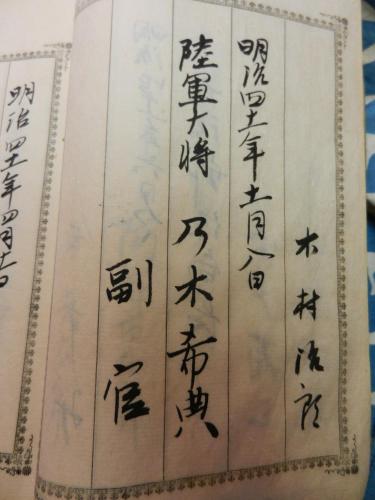 木村
明治四十一年十一月八日
陸軍大将 乃木希典
副官
明治四十一年四月十一日